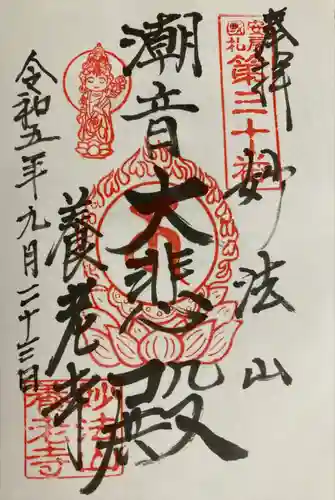 奉拝
安房
国札
第三十番
妙法山
潮音
大悲殿
養老寺
令和五年九月二十三日
妙法山
養老寺